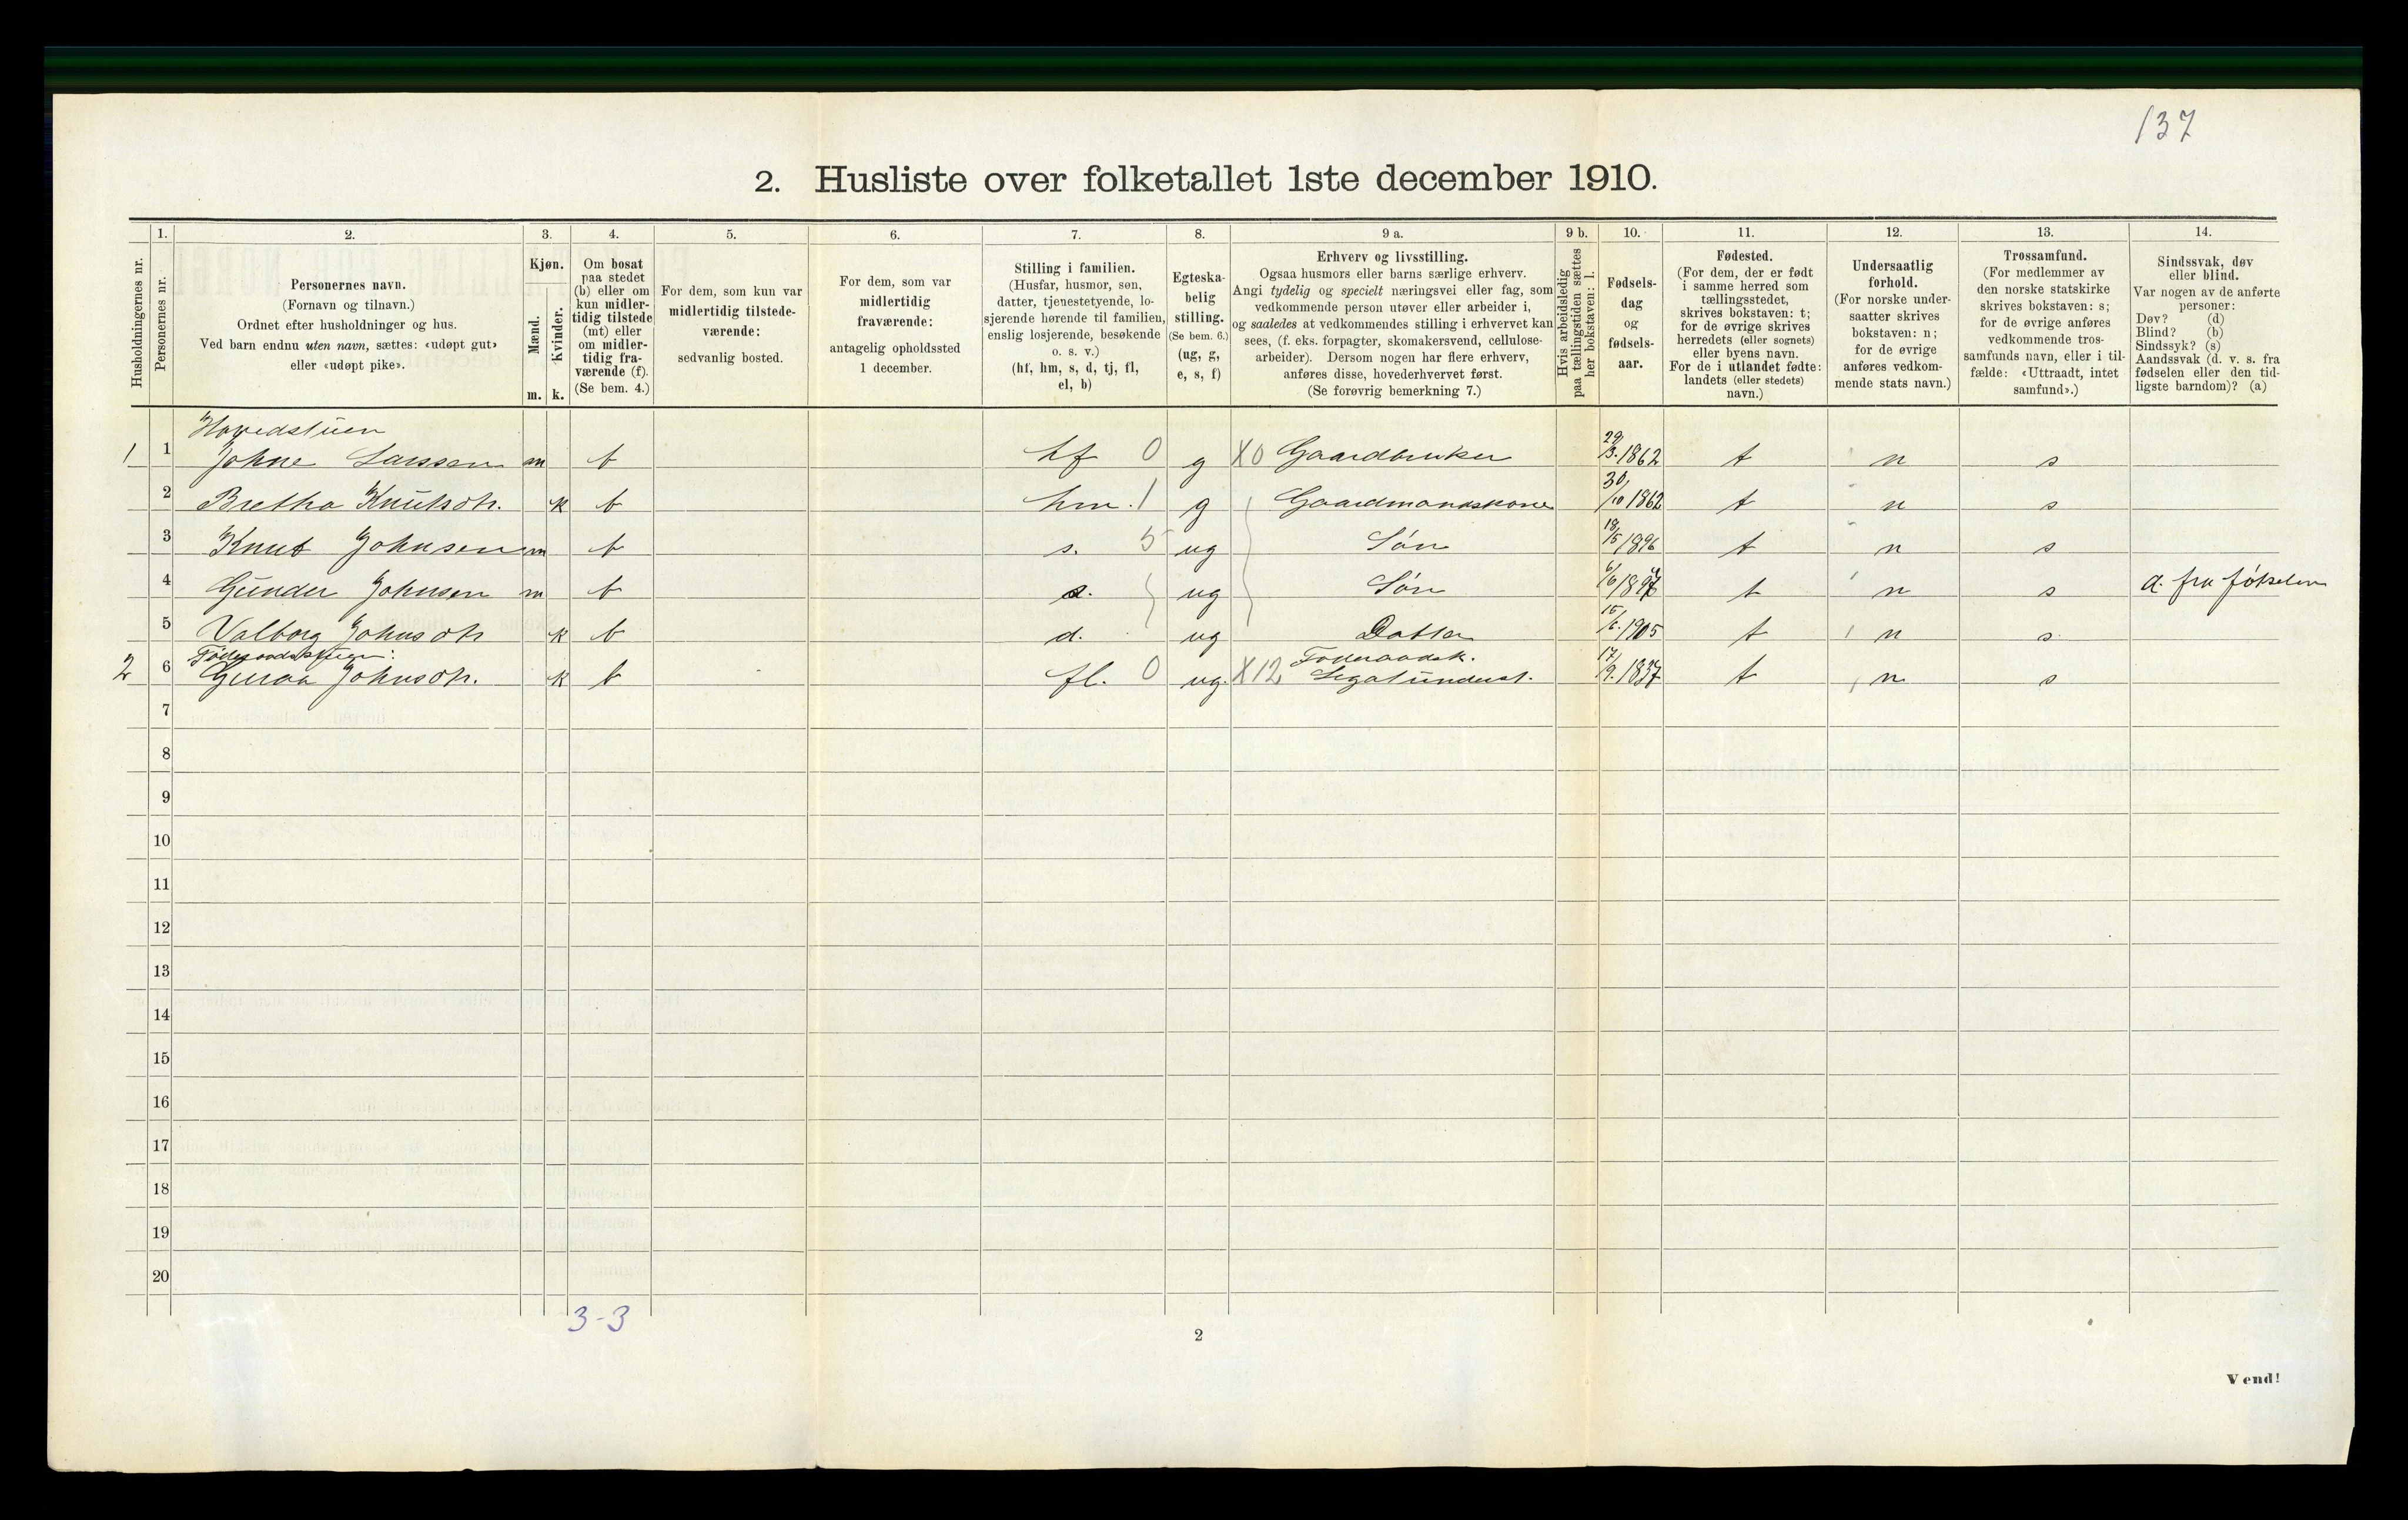 137
2. Husliste over folketallet 1ste december 1910.
Husholdningernes nr.
1.
Personernes nr.
2.
Personernes navn.
(Fornavn og tilnavn.)
Ordnet efter husholdninger og hus.
Ved barn endnu uten navn, sættes: «udøpt gut»
eller «udøpt pike».
3.
Kjøn.
Mænd.
Kvinder.
m. k.
4.
Om bosat
paa stedet
(b) eller om
kun midler-
tidig tilstede
(mt) eller
om midler-
tidig fra-
værende (f).
(Se bem. 4.)
5.
For dem, som kun var
midlertidig tilstede-
værende:
sedvanlig bosted.
6.
For dem, som var
midlertidig
fraværende:
antagelig opholdssted
1 december.
7.
Stilling i familien.
(Husfar, husmor, søn,
datter, tjenestetyende, lo-
sjerende hørende til familien,
enslig losjerende, besøkende
o. s. v.)
(hf, hm, s, d, tj, fl,
el, b)
8.
Egteska-
belig
stilling.
(Se bem. 6.)
(ug, g,
e, s, f)
9 a.
Erhverv og livsstilling.
Ogsaa husmors eller barns særlige erhverv.
Angi tydelig og specielt næringsvei eller fag, som
vedkommende person utøver eller arbeider i,
og saaledes at vedkommendes stilling i erhvervet kan
sees, (f. eks. forpagter, skomakersvend, cellulose-
arbeider). Dersom nogen har flere erhverv,
anføres disse, hovederhvervet først.
(Se forøvrig bemerkning 7.)
9 b.
Hvis arbeidsledig
paa tællingstiden sættes
her bokstaven: l.
10.
Fødsels-
dag
og
fødsels-
aar.
11.
Fødested.
(For dem, der er født
i samme herred som
tællingsstedet,
skrives bokstaven: t;
for de øvrige skrives
herredets (eller sognets)
eller byens navn.
For de i utlandet fødte:
landets (eller stedets)
navn.)
12.
Undersaatlig
forhold.
(For norske under-
saatter skrives
bokstaven: n;
for de øvrige
anføres vedkom-
mende stats navn.)
13.
Trossamfund.
(For medlemmer av
den norske statskirke
skrives bokstaven: s;
for de øvrige anføres
vedkommende tros-
samfunds navn, eller i til-
fælde: «Uttraadt, intet
samfund».)
14.
Sindssvak, døv
eller blind.
Var nogen av de anførte
personer:
Døv? (d)
Blind? (b)
Sindssyk? (s)
Aandssvak (d. v. s. fra
fødselen eller den tid-
ligste barndom)? (a)
Hovedstuen
1 1 Johne Larssen m b hf 0 g X0 Gaardbruker 29/3. 1862 t n s
2 Bretha Knutsdtr. k b hm. 1 g Gaardmandskone 30/10 1862 t n s
3 Knut Johnsen m b s. 5 ug Søn 18/5 1896 t n s
4 Gunder Johnsen m b s. ug Søn 6/6 1897 t n s d. fra fødselen
5 Valborg Johnsdtr k b d. ug Datter 15/6. 1905 t n s.
Føderaadsstuen:
2 6 Johnsdtr. k b fl. 0 ug. X12 Føderaadsk. Legatunderst. 17/9. 1837 t n s
7
8
9
10
11
12
13
14
15
16
17
18
19
20
3-3
2
Vend!